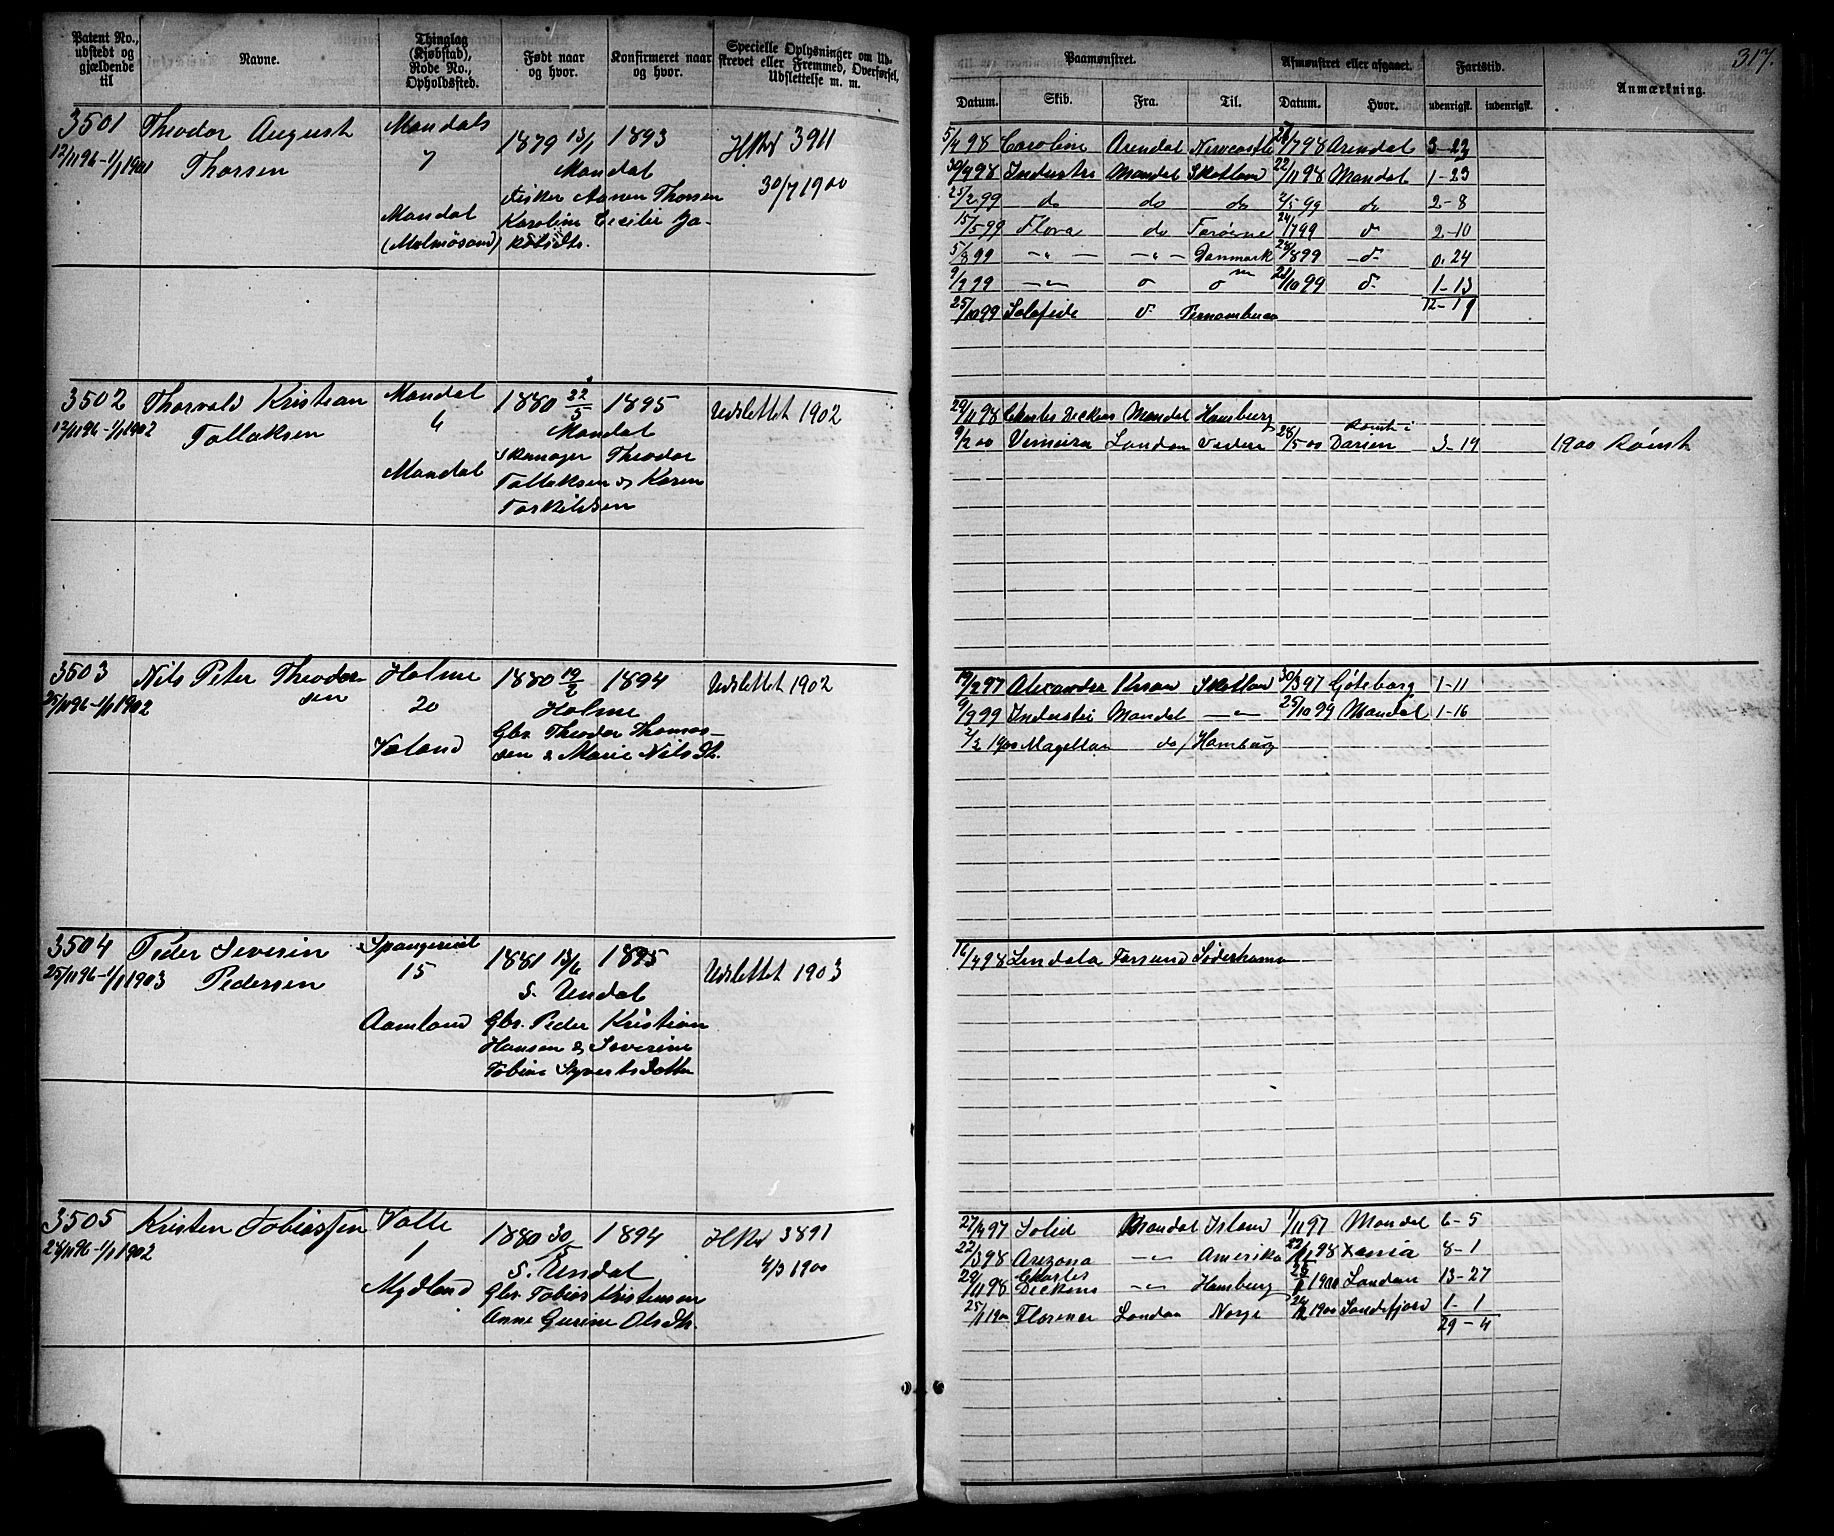 Patent No., udstedt og gjældende til | Navne. | Thinglag (Kjøbstad), Rode No., Opholdssted. | Født naar og hvor. | Konfirmeret naar og hvor. | Specielle Oplysninger om Udskrevet eller Fremmed, Overførsel, Udslettelse m. m.
3501 Theodor August Mandals 1879 13/1 1893
12/11 96-1/1 1901 Thorsen 7 Mandal
Fisker Aanen Thorsen 30/7 1900
Mandal Karoline Cecilie Ja-
(Malmøsund) kobsdtr.
3502 Thorvald Kristian Mandal 1880 22/5 1895 Udslettet 1902
12/11 96-1/1 1902 Tallaksen 4 Mandal
Mandal Theodor
Tallaksen og Karen
Torkildsen
3503 Nils Peter Theodor Holme 1880 19/2 1894 Udslettet 1902
25/11 96-1/1 1902 sen 20 Holme
Gbr. Theodor Thomas-
Valand sen & Marie Nils Dt.
3504 Peder Severin Spangereid 1881 13/6 1895
25/11 96-1/1 1903 Pedersen 15 S. Undal Udslettet 1903
Aamland Gbr. Peder Kristian
Hansen & Severine
Tobine Syvertsdatter
3505 Kristen Tobiassen Valle 1880 30/5 1894 3891
28/11 96-1/1 1902 1 S. Undal 4/3 1900
Mydland Gbr. Tobias Kristensen
Anne Gurine Olsdtr.
317.
Paamønstret. | Afmønstret eller afgaaet. | Fartstid. | Anmærkning.
Datum. | Skib. | Fra. | Til. | Datum. | Hvor. | udenrigsk. | indenrigsk.
5/4 98 Caroline Arendal Newcastle 28/7 98 Arendal 3-23
30/9 98 Industri Mandal Skotland 22/11 98 Mandal 1-23
25/2 99 do do do 2/5 99 do 2-8
15/5 99 Flora do Færøerne 24/7 99 2-10
5/8 99 -"- -"- Danmark 28/8 99 0-24
9/9 99 -"- 21/10 99 1-13
12-11
25/10 99 Solafide Pernambuco
29/11 98 Charles Dickens Mandal Hamburg
9/2 00 Vimeira London 28/5 00 Rømt i Darien 3-19 1900 Rømt
19/2 97 Alexandra Krsan Skotland 30/3 97 Göteborg 1-11
9/9 99 Industri Mandal -"- 25/10 99 Mandal 1-16
2/2 1900 Magellan do Hamburg
16/4 98 Farsund Söderhamn
27/4 97 Solid Mandal Island 1/11 97 Mandal 6-5
22/3 98 Arizona -"- Amerika 22/11 98 8-1
29/11 98 Charles Dickens -"- Hamburg 1900 London 13-27
25/1 1900 Florence London Norge 26/2 1900 Sandefjord 1-1
29-4